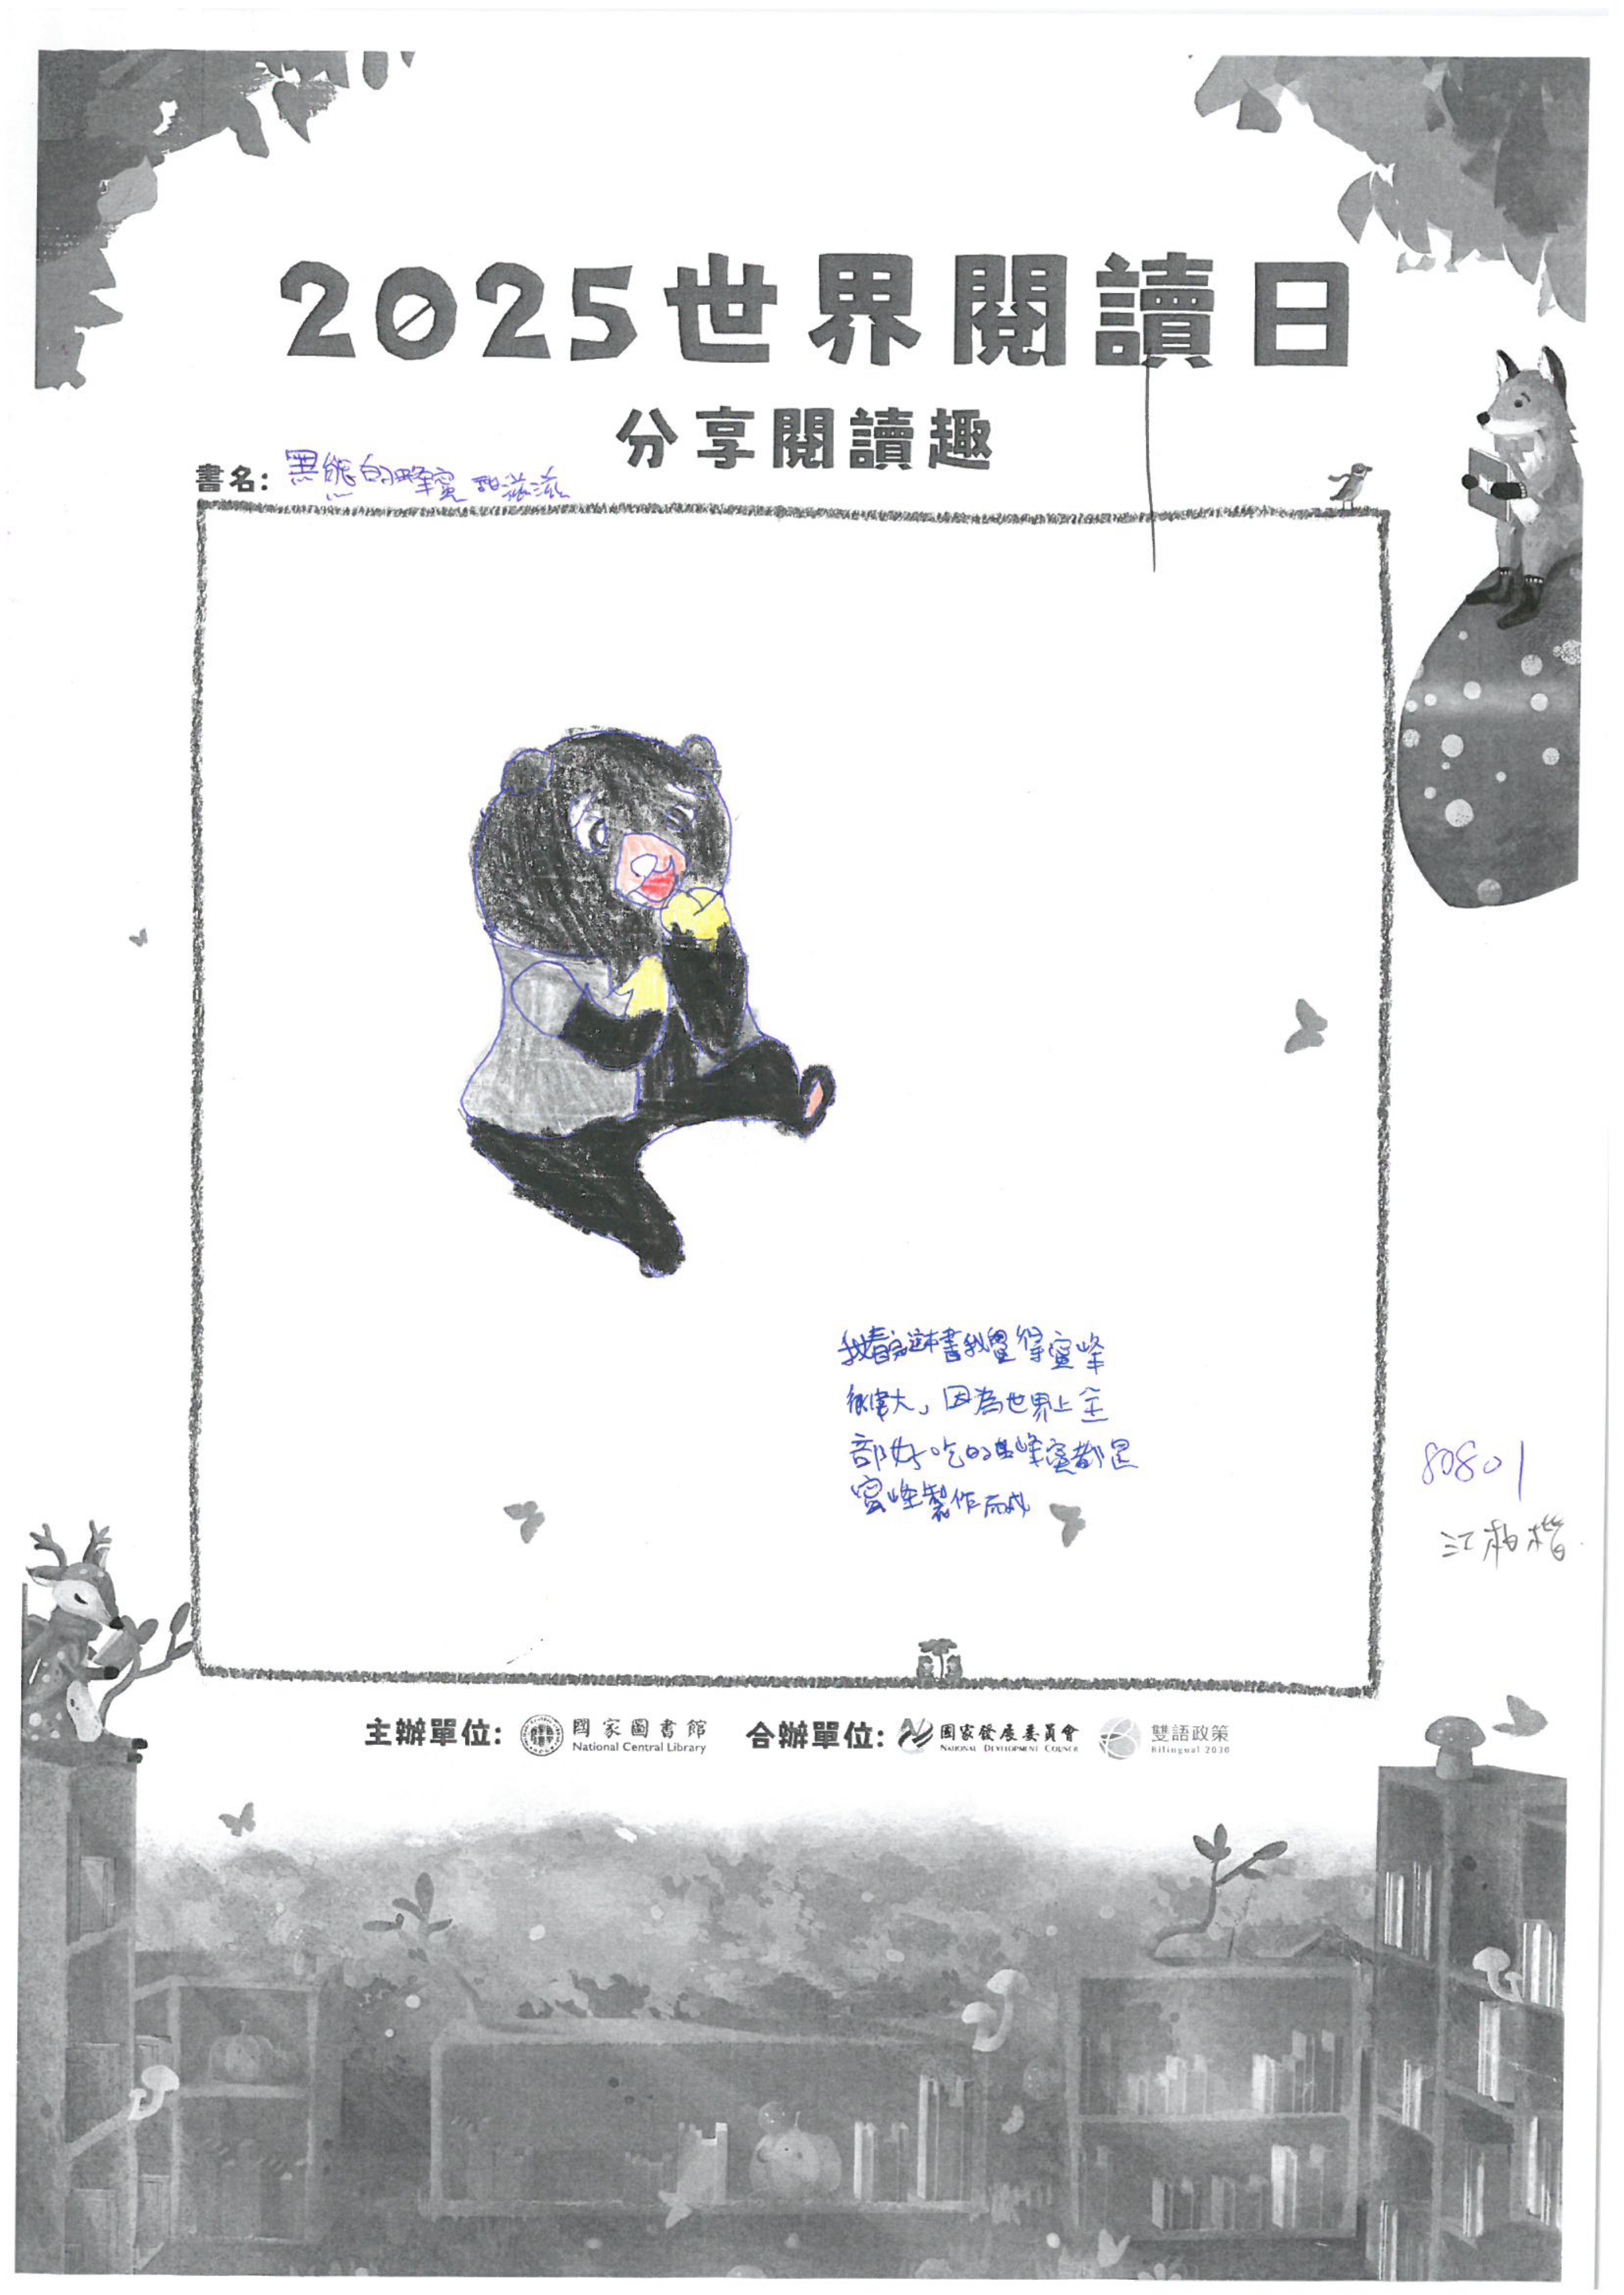 2025世界閱讀日
分享閱讀趣
書名：黑熊的蜂蜜 甜滋滋
我看完這本書我覺得蜜蜂
很偉大，因為世界上全
部好吃的蜂蜜都是
蜜蜂製作而成
80801
江柏楷
主辦單位： 國家圖書館 National Central Library 合辦單位： 國家發展委員會 National Development Council 雙語政策 Bilingual 2030